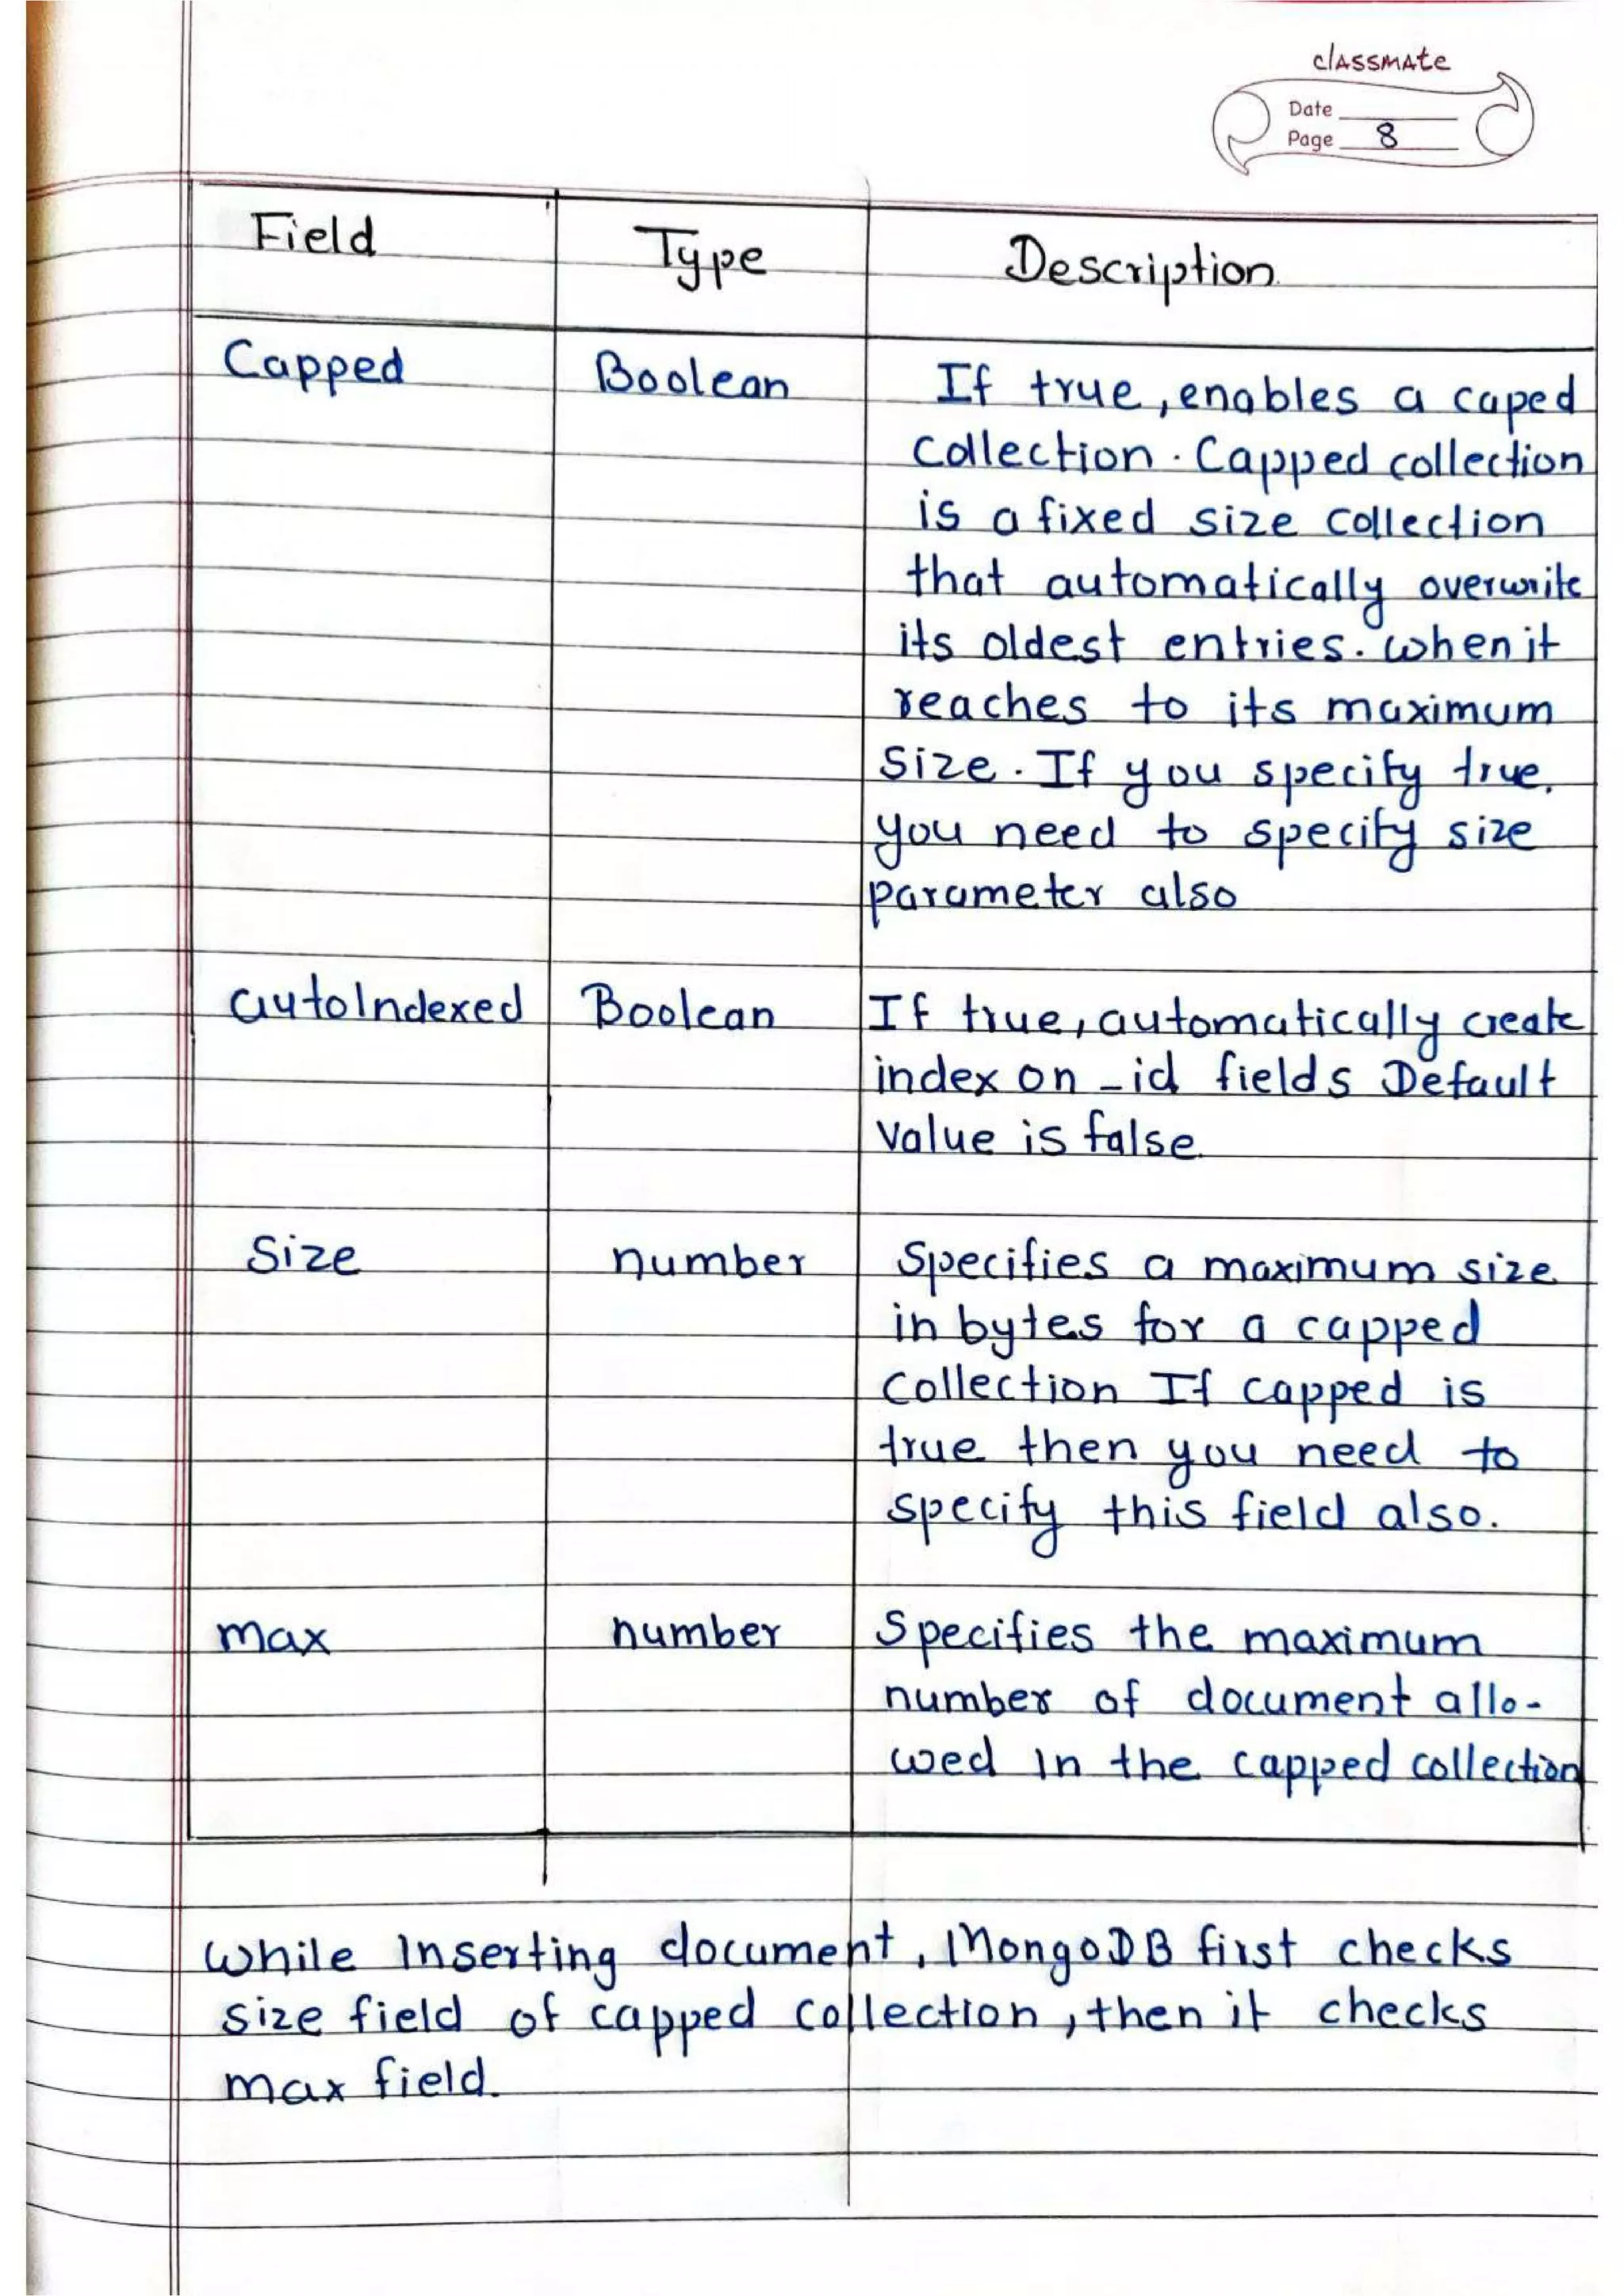 classmate
Date
Page 8
Field Type Description
Capped Boolean If true, enables a caped
collection. Capped collection
is a fixed size collection
that automatically overwrite
its oldest entries. when it
reaches to its maximum
Size. If you specify true.
you need to specify size
parameter also
autoIndexed Boolean If true, automatically create
index on _id fields Default
Value is false
Size number Specifies a maximum size
in bytes for a capped
collection If capped is
true then you need to
specify this field also.
max number Specifies the maximum
number of document allo-
wed in the capped collection
while Inserting document, MongoDB first checks
size field of capped collection, then it checks
max field.